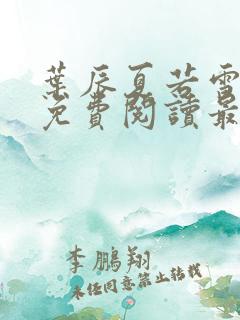 葉辰夏若雪
免費閱讀最
李鵬翔
未任同意禁止轉載